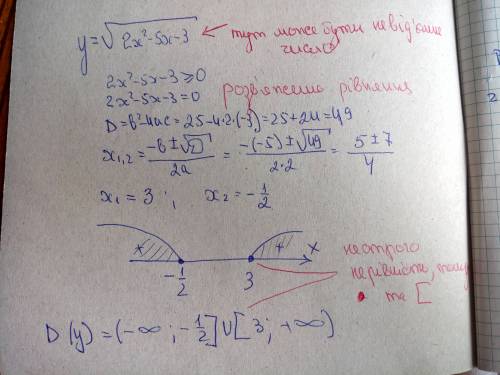 y=√2x²-5x-3 ← тут може бути невід'ємне
число
2x²-5x-3≥0
2x²-5x-3=0 розв'яжемо рівняння
D=b²-4ac=25-4·2·(-3)=25+24=49
x₁,₂=(-b±√D)/2a=(-(-5)±√49)/2·2=(5±7)/4
x₁=3; x₂=-1/2
+ + x
-1/2 3
нестрого
нерівність, тому
• та [
D(y)=(-∞;-1/2]U[3;+∞)